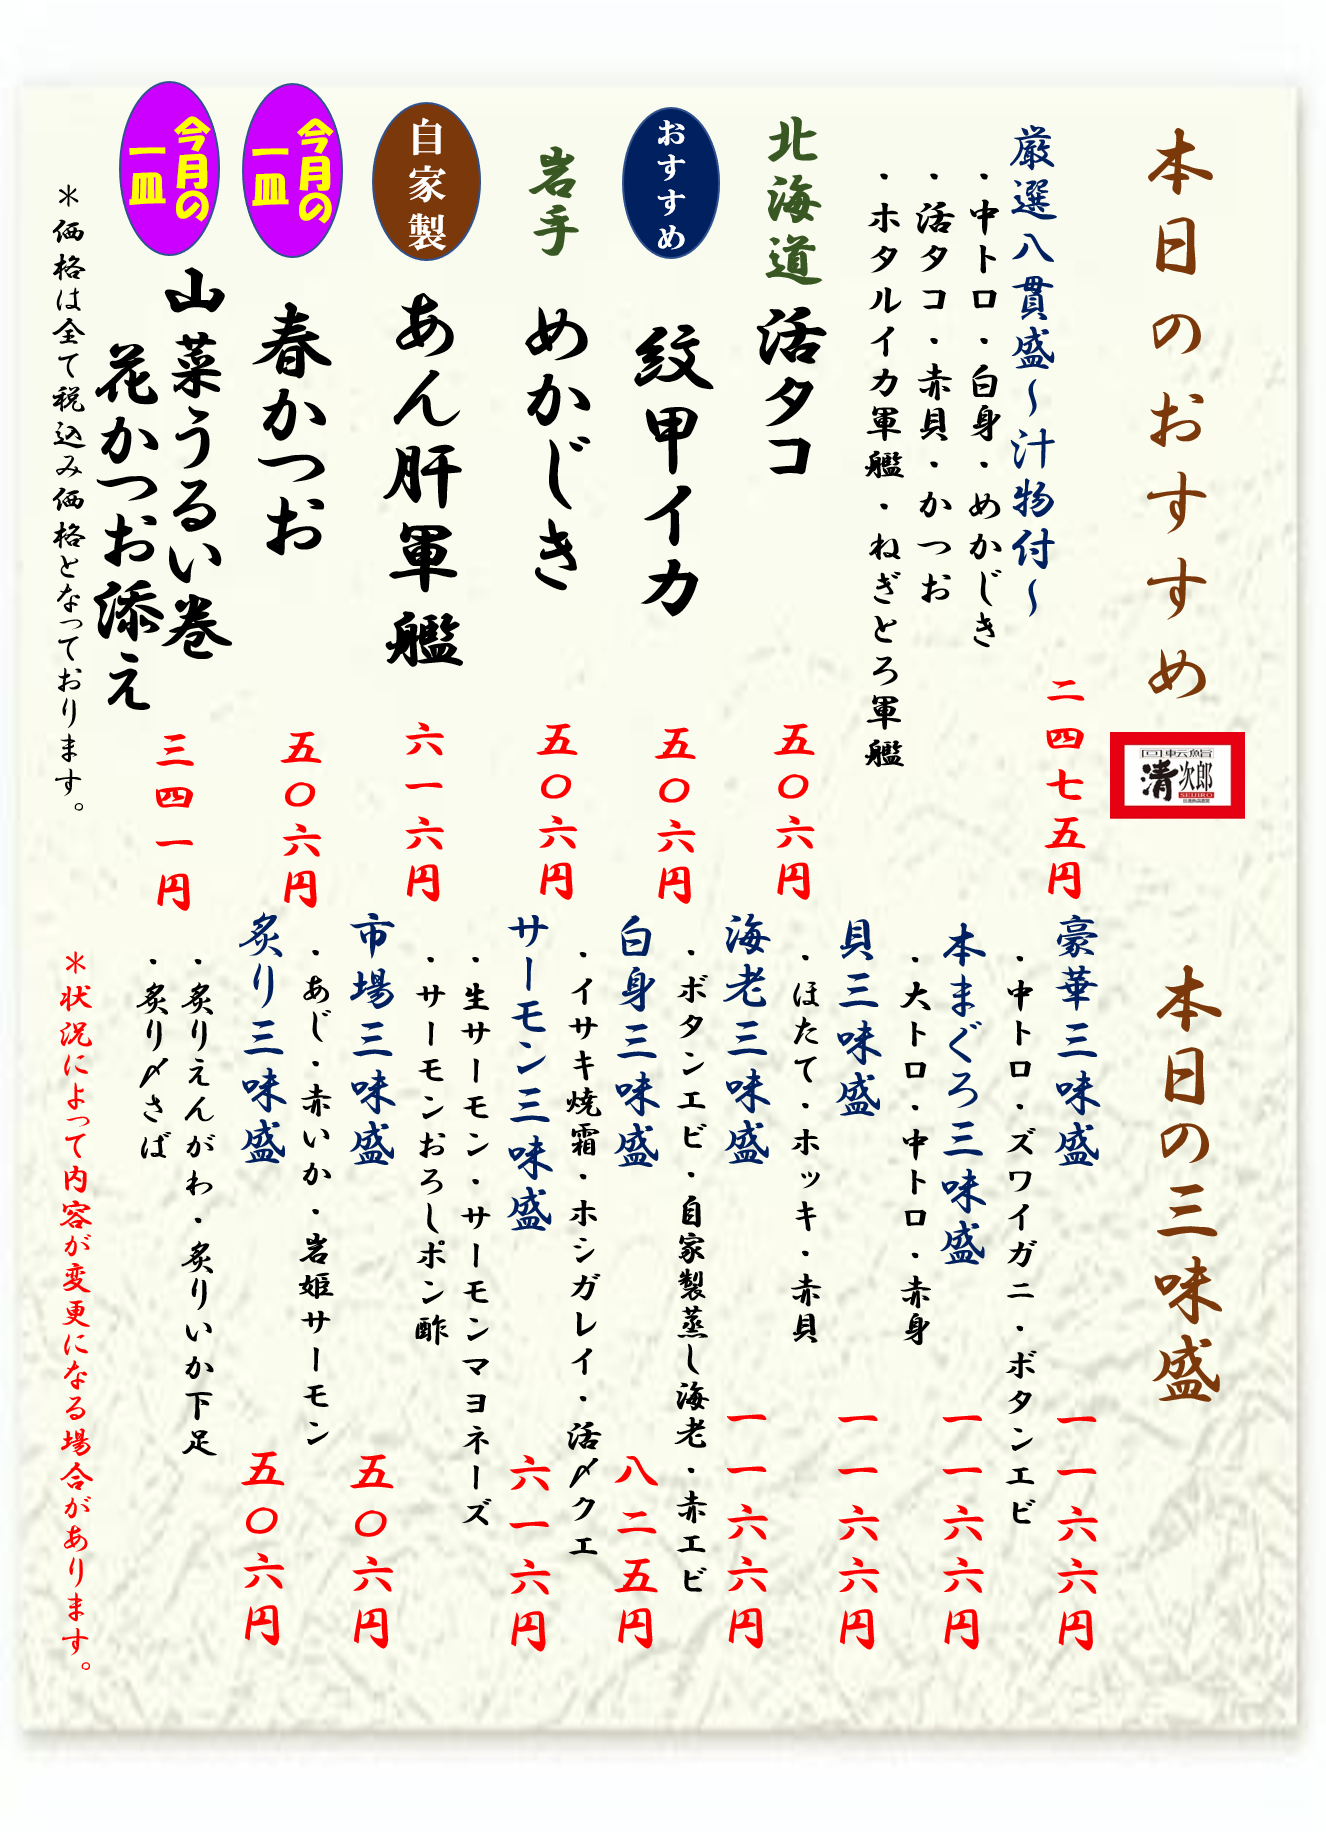 本日のおすすめ
回転鮨
清次郎
SEIJIRO
厳選八貫盛～汁物付～
二四七五円
・中トロ・白身・めかじき
・活タコ・赤貝・かつお
・ホタルイカ軍艦・ねぎとろ軍艦
北海道
活タコ
五〇六円
おすすめ
紋甲イカ
五〇六円
岩手
めかじき
五〇六円
自家製
あん肝軍艦
六一六円
今月の
一皿
春かつお
五〇六円
今月の
一皿
山菜うるい巻
花かつお添え
三四一円
＊価格は全て税込み価格となっております。
本日の三味盛
豪華三味盛
一一六六円
・中トロ・ズワイガニ・ボタンエビ
本まぐろ三味盛
一一六六円
・大トロ・中トロ・赤身
貝三味盛
一一六六円
・ほたて・ホッキ・赤貝
海老三味盛
一一六六円
・ボタンエビ・自家製蒸し海老・赤エビ
白身三味盛
八二五円
・イサキ焼霜・ホシガレイ・活〆クエ
サーモン三味盛
六一六円
・生サーモン・サーモンマヨネーズ
・サーモンおろしポン酢
市場三味盛
五〇六円
・あじ・赤いか・岩姫サーモン
炙り三味盛
五〇六円
・炙りえんがわ・炙りいか下足
・炙り〆さば
＊状況によって内容が変更になる場合があります。